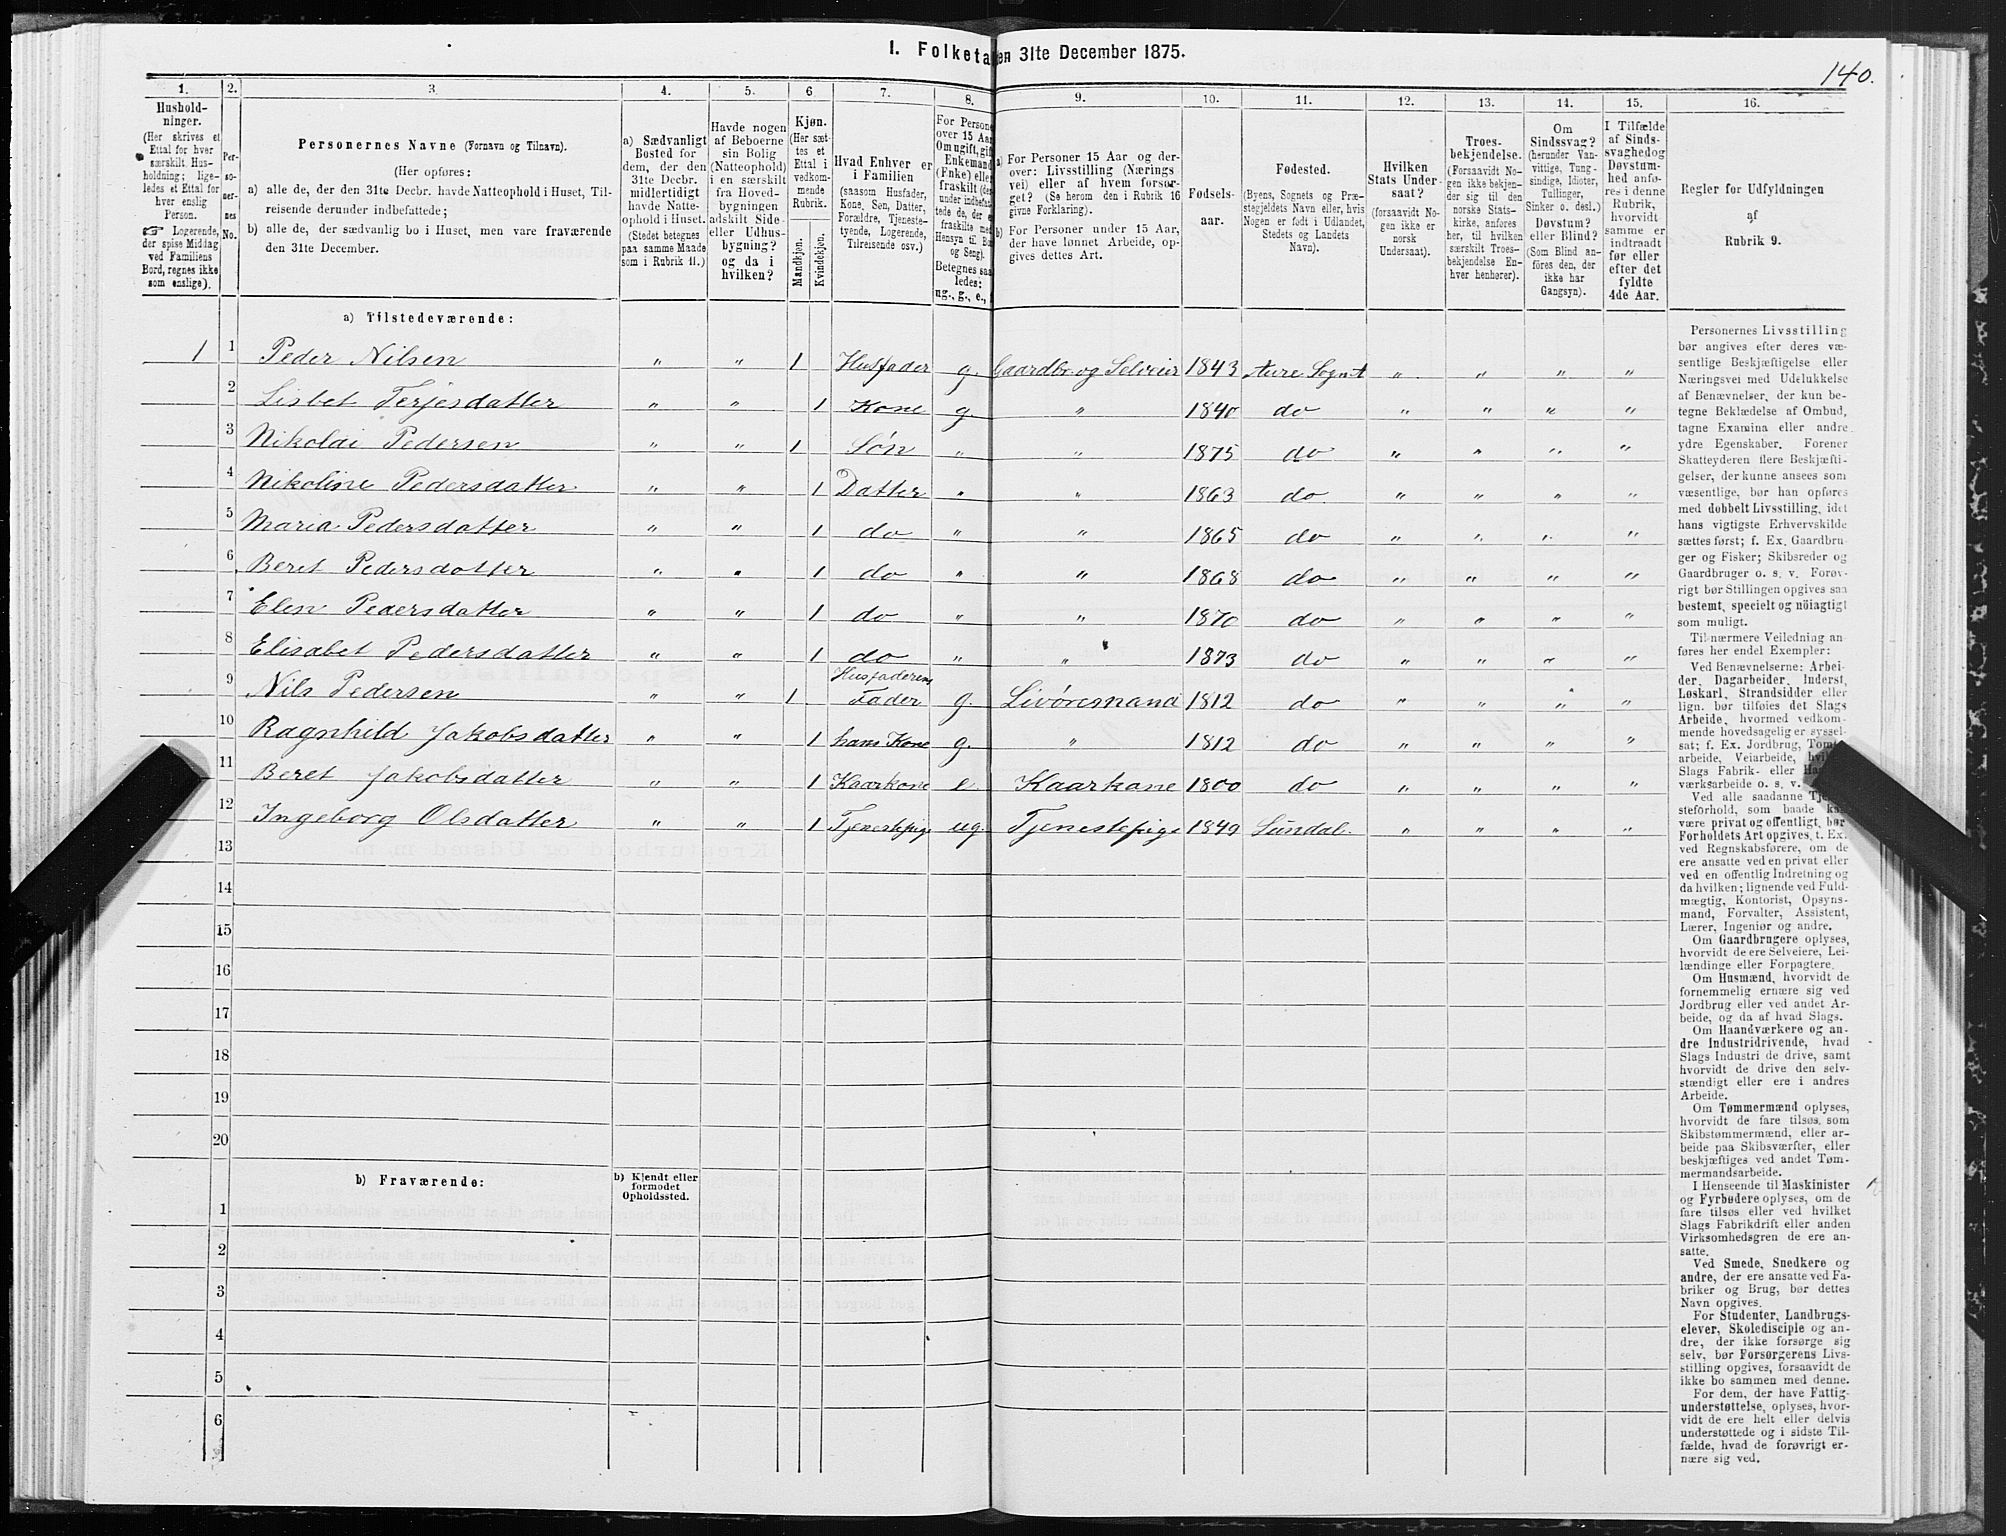 I. Folketa
en 31te December 1875.
140.
1. 2. 3. 4. 5. 6 7. 8. 9. 10. 11. 12. 13. 14. 15. 16.
Hushold-
ninger.
(Her skrives et
Ettal for hver
særskilt Hus-
holdning; lige-
ledes et Ettal for
hver enslig
Person.
☞ Logerende,
der spise Middag
ved Familiens
Bord, regnes ikke
som enslige).
Per-
so-
ner-
nes
No.
Personernes Navne (Fornavn og Tilnavn).
(Her opføres:
a) alle de, der den 31te Decbr. havde Natteophold i Huset, Til-
reisende derunder indbefattede;
b) alle de, der sædvanlig bo i Huset, men vare fraværende
den 31te December.
a) Sædvanligt
Bosted for
dem, der den
31te Decbr.
midlertidigt
havde Natte-
ophold i Huset.
(Stedet betegnes
paa samme Maade
som i Rubrik 11.)
Havde nogen
af Beboerne
sin Bolig
(Natteophold)
i en særskilt
fra Hoved-
bygningen
adskilt Side-
eller Udhus-
bygning?
og da i
hvilken?
Kjøn.
(Her sæt-
tes et
Ettal i
vedkom-
mende
Rubrik.
Mandkjøn.
Kvindekjøn.
Hvad Enhver er
i Familien
(saasom Husfader,
Kone, Søn, Datter,
Forældre, Tjeneste-
tyende, Logerende,
Tilreisende osv.)
For Persone
over 15 Aar
Om ugift, gift
Enkemand
(Enke) eller
fraskilt (der
under indbefat-
tede de, der e
fraskilte med
Hensyn til Bo
og Seng).
Betegnes saa
ledes:
ug., g., e.,
a) For Personer 15 Aar og der-
over: Livsstilling (Nærings
vei) eller af hvem forsør-
get? (Se herom den i Rubrik 16
givne Forklaring).
b) For Personer under 15 Aar,
der have lønnet Arbeide, op-
gives dettes Art.
Fødsels-
aar.
Fødested.
(Byens, Sognets og Præ-
stegjeldets Navn eller, hvis
Nogen er født i Udlandet,
Stedets og Landets
Navn).
Hvilken
Stats Under-
saat?
(forsaavidt No-
gen ikke er
norsk
Undersaat).
Troes-
bekjendelse.
(Forsaavidt No-
gen ikke bekjen-
der sig til den
norske Stats-
kirke, anføres
her, til hvilken
særskilt Troes-
bekjendelse En-
hver henhører).
Om
Sindssvag?
(herunder Van-
vittige, Tung-
sindige, Idioter,
Tullinger,
Sinker o. desl.)
Døvstum?
eller Blind?
(Som Blind an-
føres den, der
ikke har
Gangsyn).
I Tilfælde
af Sinds-
svaghed og
Døvstum-
hed anfø-
res i denne
Rubrik,
hvorvidt
samme er
indtraadt
før eller
efter det
fyldte
4de Aar.
Regler for Udfyldningen
af
Rubrik 9.
a) Tilstedeværende:
1 1 Peder Nilsen " " 1 Husfader g. Gaardbr. og Selveier 1843 Aure Sognt " " " "
2 Lisbet Terjesdatter " " 1 Kone g. " 1840 do " " " "
3 Nikolai Pedersen " " 1 Søn " " 1875 do " " " "
4 Nikoline Pedersdatter " " 1 Datter " " 1863 do. " " " "
5 Maria Pedersdatter " " 1 do " " 1865 do " " " "
6 Beret Pedersdatter " " 1 do " " 1868 do " " " "
7 Elen Pedersdatter " " 1 do " " 1870 do " " " "
8 Elisabet Pedersdatter " " 1 do " " 1873 do " " " "
9 Nils Pedersen " " 1 Husfaderens Fader g. Livøresmand 1812 do " " " "
10 Ragnhild Jakobsdatter " " 1 hans Kone g. " 1812 do " " " "
11 Beret Jakobsdatter " " 1 Kaarkone e Kaarkone 1800 do " " " "
12 Ingeborg Olsdatter " " 1 Tjenestepige ug. Tjenestepige 1849 Sundal. " " " "
13
14
15
16
17
18
19
20
b) Fraværende:
b) Kjendt eller
formodet
Opholdssted.
1
2
3
4
5
6
Personernes Livsstilling
bør angives efter deres væ-
sentlige Beskjæftigelse eller
Næringsvei med Udelukkelse
af Benævnelser, der kun be-
tegne Beklædelse af Ombud,
tagne Examina eller andre
ydre Egenskaber. Forener
Skatteyderen flere Beskjæfti-
gelser, der kunne ansees som
væsentlige, bør han opføres
med dobbelt Livsstilling, idet
hans vigtigste Erhvervskilde
sættes først; f. Ex. Gaardbru-
ger og Fisker; Skibsreder og
Gaardbruger o. s. v. Forøv-
rigt bør Stillingen opgives saa
bestemt, specielt og nöiagtigt
som muligt.
Til nærmere Veiledning an-
føres her endel Exempler:
Ved Benævnelserne: Arbei-
der, Dagarbeider, Inderst,
Løskarl, Strandsidder eller
lign. bør tilføies det Slags
Arbeide, hvormed vedkom-
mende hovedsagelig er syssel-
sat; f. Ex. Jordbrug, Tomt-
arbeide, Veiarbeide, hvil
Slags Fabrik- eller Ha
værksarbeide o. s. v.
Ved alle saadanne Tje
steforhold, som baade ka
være privat og offentligt, bør
Forholdets Art opgives, t. Ex.
ved Regnskabsførere, om de
ere ansatte ved en privat eller
ved en offentlig Indretning og
da hvilken; lignende ved Fuld-
mægtig, Kontorist, Opsyns-
mand, Forvalter, Assistent,
Lærer, Ingeniør og andre.
Om Gaardbrugere oplyses,
hvorvidt de ere Selveiere, Lei-
lændinge eller Forpagtere.
Om Husmænd, hvorvidt de
fornemmelig ernære sig ved
Jordbrug eller ved andet Ar-
beide, og da af hvad Slags.
Om Haandværkere og an-
dre Industridrivende, hvad
Slags Industri de drive, samt
hvorvidt de drive den selv-
stændigt eller ere i andres
Arbeide.
Om Tømmermænd oplyses,
hvorvidt de fare tilsøs som
Skibstømmermænd, eller ar-
beide paa Skibsværfter, eller
beskjæftiges ved andet Tøm-
mermandsarbeide.
I Henseende til Maskinister
og Fyrbødere oplyses, om de
fare tilsøs eller ved hvilket
Slags Fabrikdrift eller anden
Virksomhedsgren de ere an-
satte.
Ved Smede, Snedkere og
andre, der ere ansatte ved Fa-
briker og Brug, bør dettes
Navn opgives.
For Studenter, Landbrugs-
elever, Skoledisciple og an-
dre, der ikke forsørge sig
selv, bør Forsørgerens Livs-
stilling opgives, forsaavidt de
ikke bo sammen med denne.
For dem, der have Fattig-
understøttelse, oplyses, hvor-
vidt de ere helt eller delvis
understøttede og i sidste Til-
fælde, hvad de forøvrigt er-
nære sig ved.